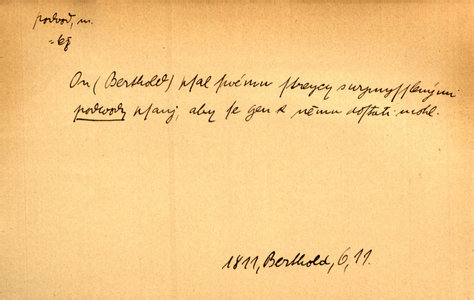 podvod, m.
= ეę
On (Berthold) psal swému strycy s wymysslenými
podwody psanj, aby se gen k němu dostati mohl.
1811, Berthold, 6, 11.